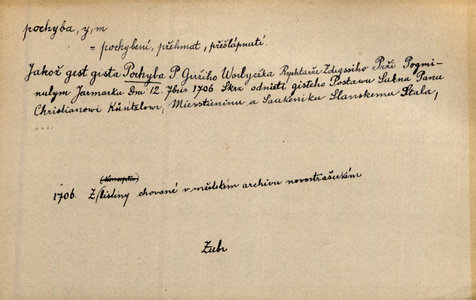 pochyba, y, m
= pochybení, přehmat, přešlápnutí.
Jakož gest gista Pochyba P Giržiho Worlycžka Rychtaře Zdegssiho Prži Pogmi-
nulym Jarmarku Dni 12. 7bris 1706 Skrz odnietí gisteho Postawu Sukna Panu
Christianowi Küntzlowi, Miesstieninu a Saukeniku Slanskemu Stala,
....
(Koncepta)
1706 Z listiny chované v městském archivu novostrašeckém
Zubr